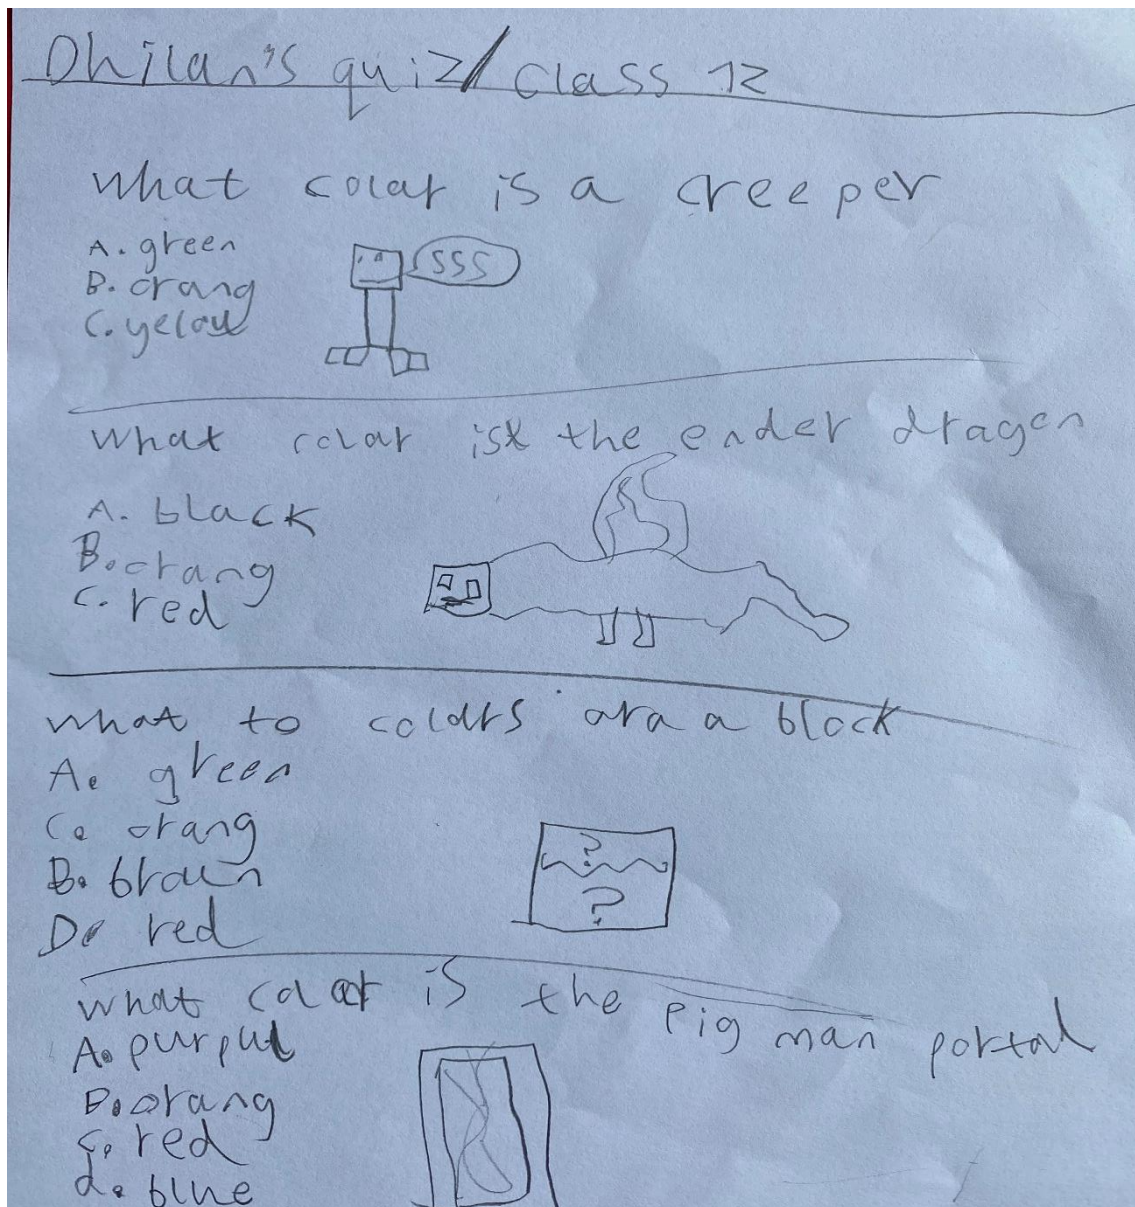 Dhilan's quiz/class 12
what colar is a creeper
A. green
B. orang
C. yelow
SSS
what colar is the ender dragen
A. black
B. orang
C. red
what to colars ara a block
A. green
C. orang
B. braun
D. red
?
?
what colar is the pig man portal
A. purpul
B. orang
C. red
d. blue